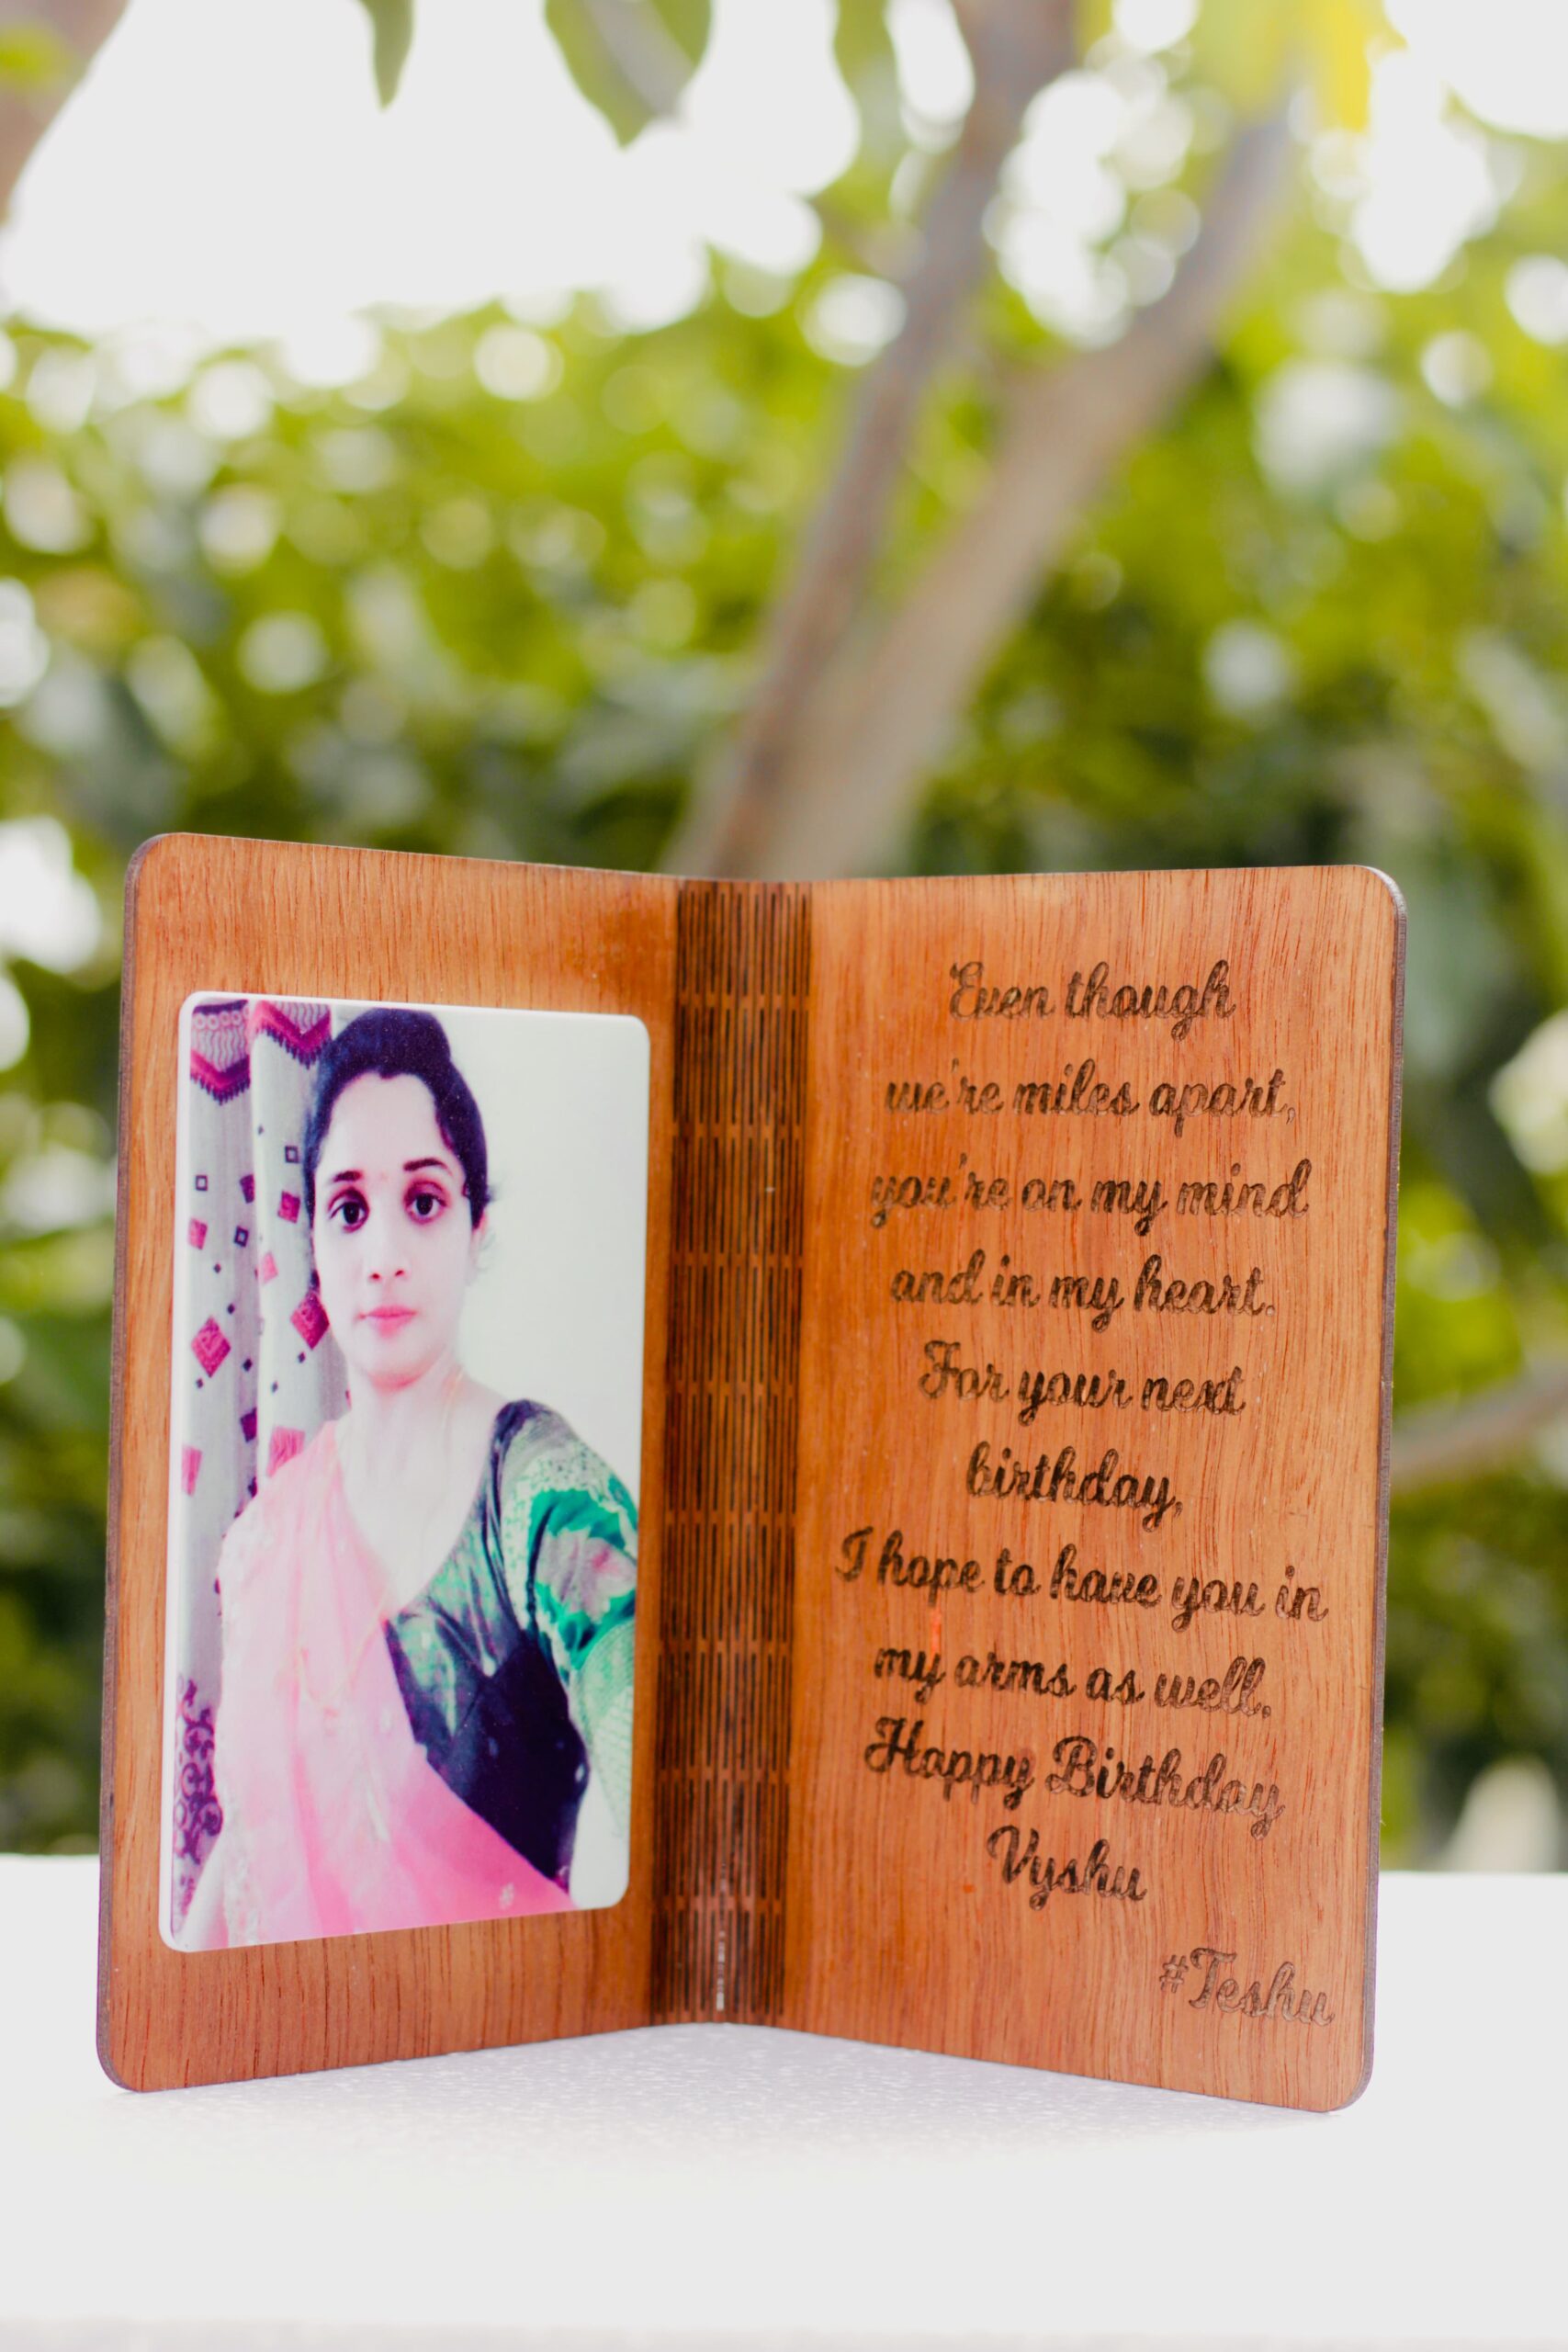 Even though
we're miles apart,
you're on my mind
and in my heart.
For your next
birthday,
I hope to have you in
my arms as well.
Happy Birthday
Vyshu
#Teshu